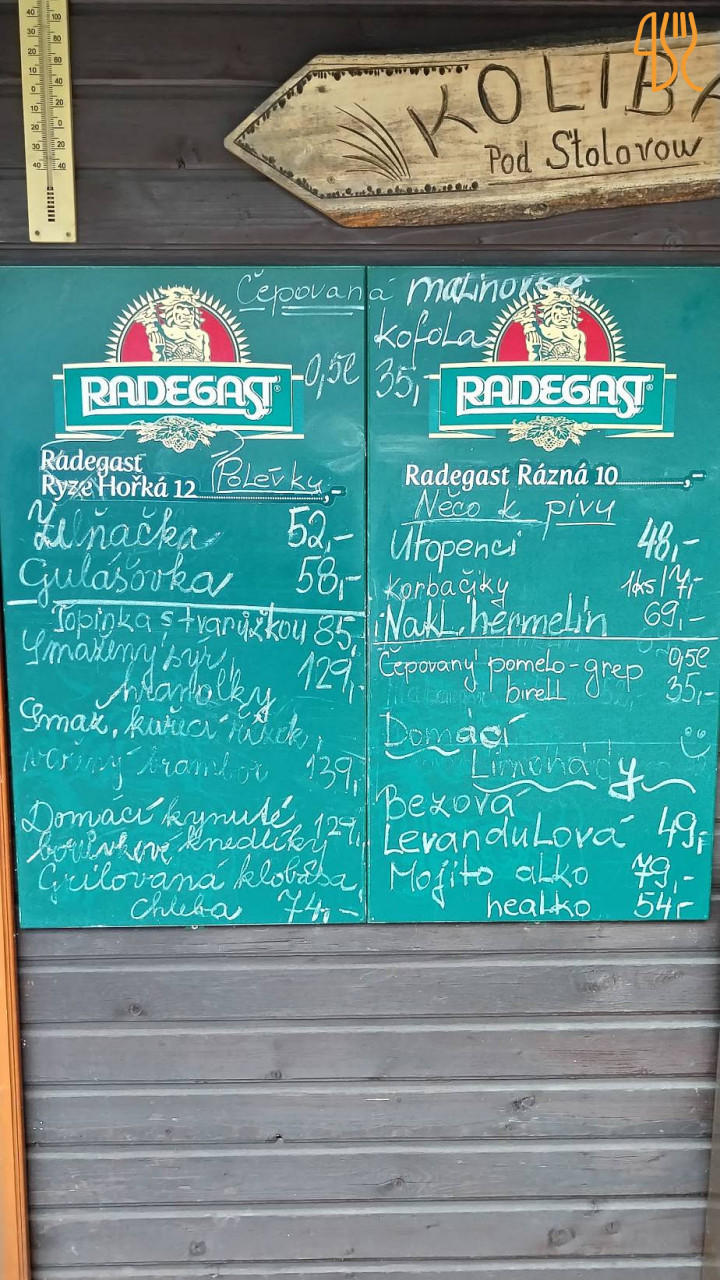 KOLIBA
Pod Stolovow
Čepovaná malinovka
kofola
0,5l 35,-
RADEGAST
Radegast
Ryze Hořká 12 ,-
Polévky
Zelňačka 52,-
Gulášovka 58,-
Topinka s tvarůžkou 85,-
Smažený sýr, 129,-
hranolky
Smaž. kuřecí řízek,
vařený brambor 139,-
Domácí kynuté 129,-
borůvkové knedlíky
Grilovaná klobása
chleba 74,-
RADEGAST
Radegast Rázná 10 ,-
Něčo k pivu
Utopenci 48,-
Korbačiky 1ks/7,-
Nakl. hermelín 69,-
Čepovaný pomelo-grep 0,5l
birell 35,-
Domácí
Limonády
Bezová
Levandulová 49,-
Mojito alko 79,-
nealko 54,-